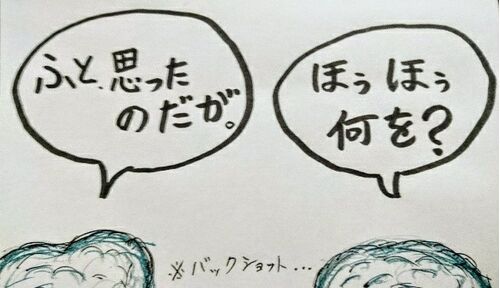 ふと、思った
のだが。
ほぅほぅ
何を？
※バックショット...